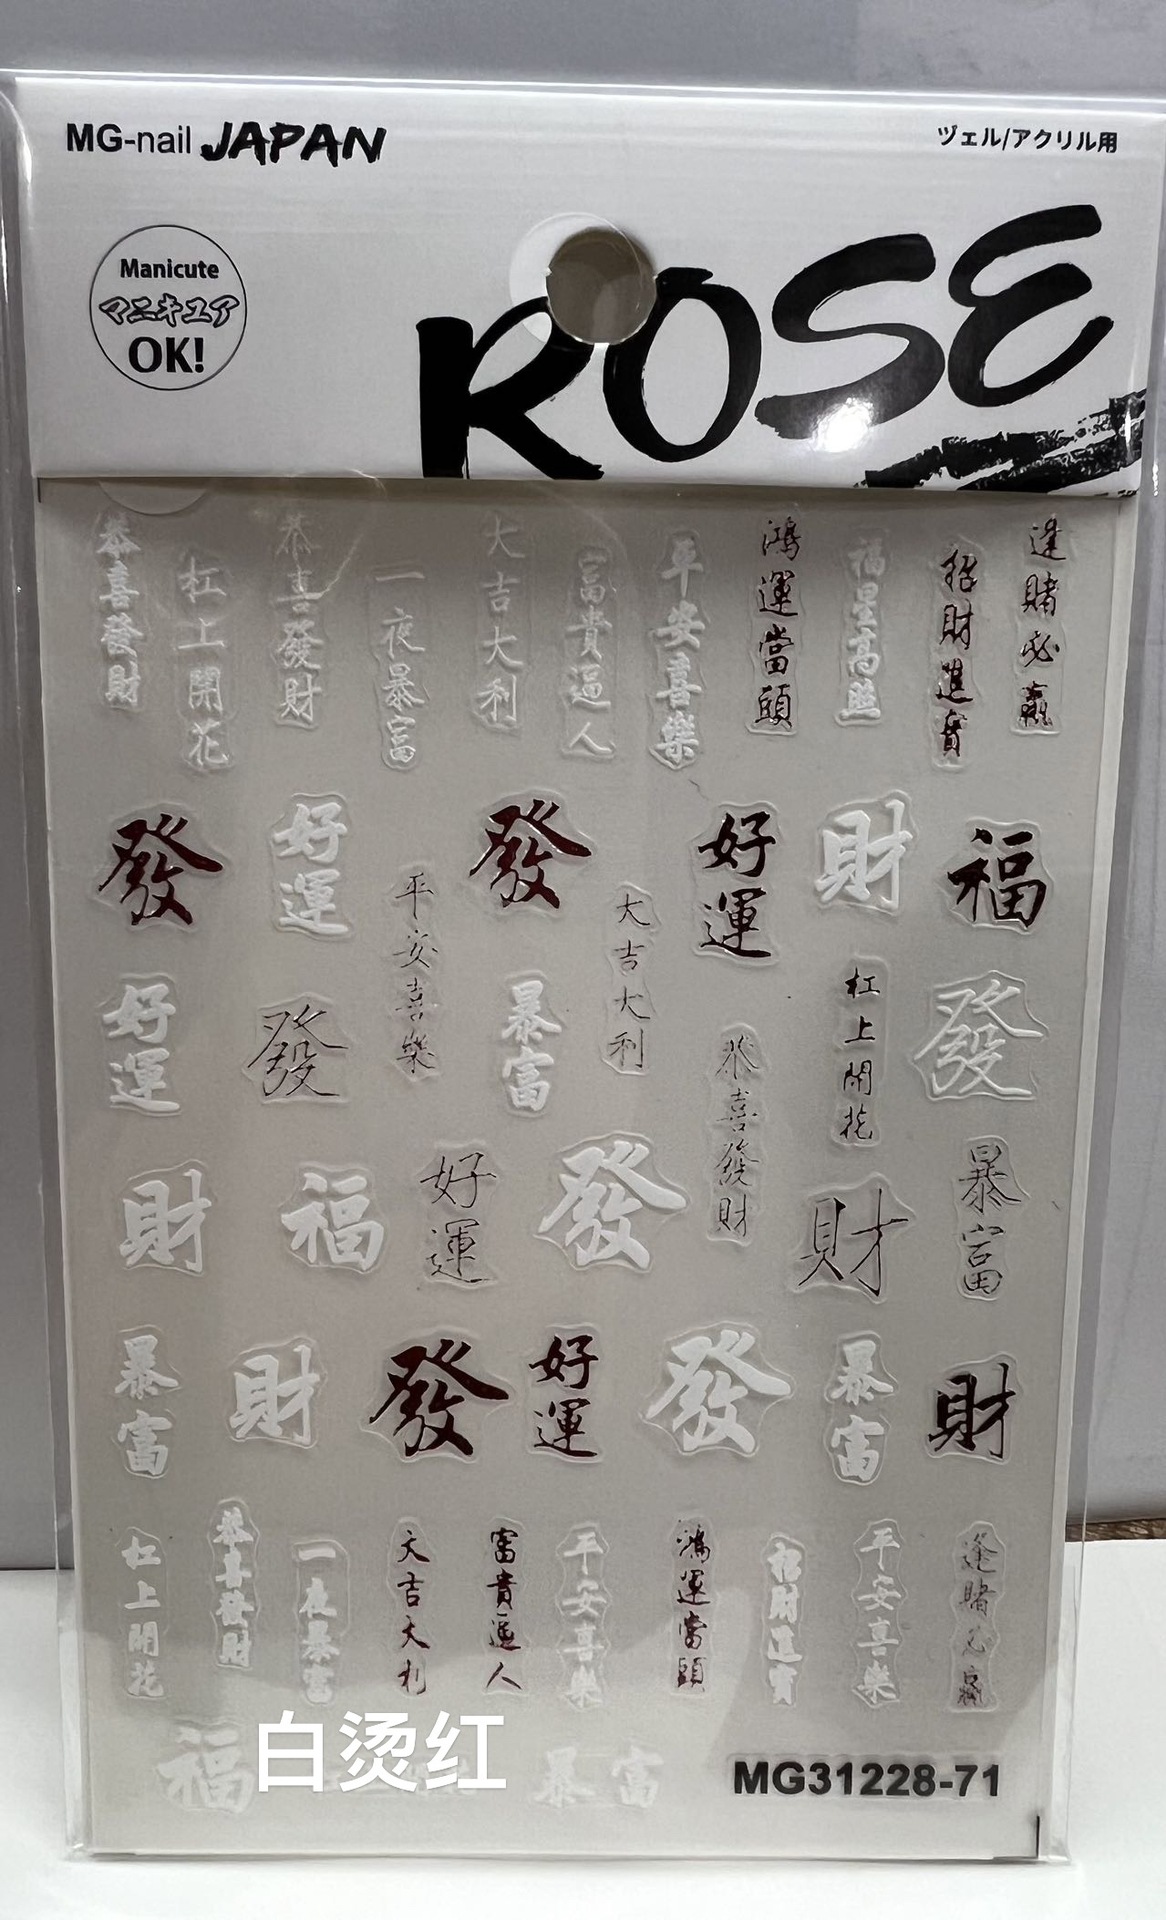 MG-nail JAPAN
ヅェル/アクリル用
Manicute
マニキュア
OK!
ROSE
恭喜發財
杠上開花
恭喜發財
一夜暴富
大吉大利
富貴逼人
平安喜樂
鴻運當頭
福星高照
招財進寶
逢賭必贏
發
好運
平安喜樂
發
大吉大利
好運
財
福
好運
發
暴富
恭喜發財
杠上開花
發
財
福
好運
發
財
暴富
暴富
財
發
好運
發
暴富
財
杠上開花
恭喜發財
一夜暴富
大吉大利
富貴逼人
平安喜樂
鴻運當頭
招財進寶
平安喜樂
逢賭必贏
福
白烫红
暴富
MG31228-71